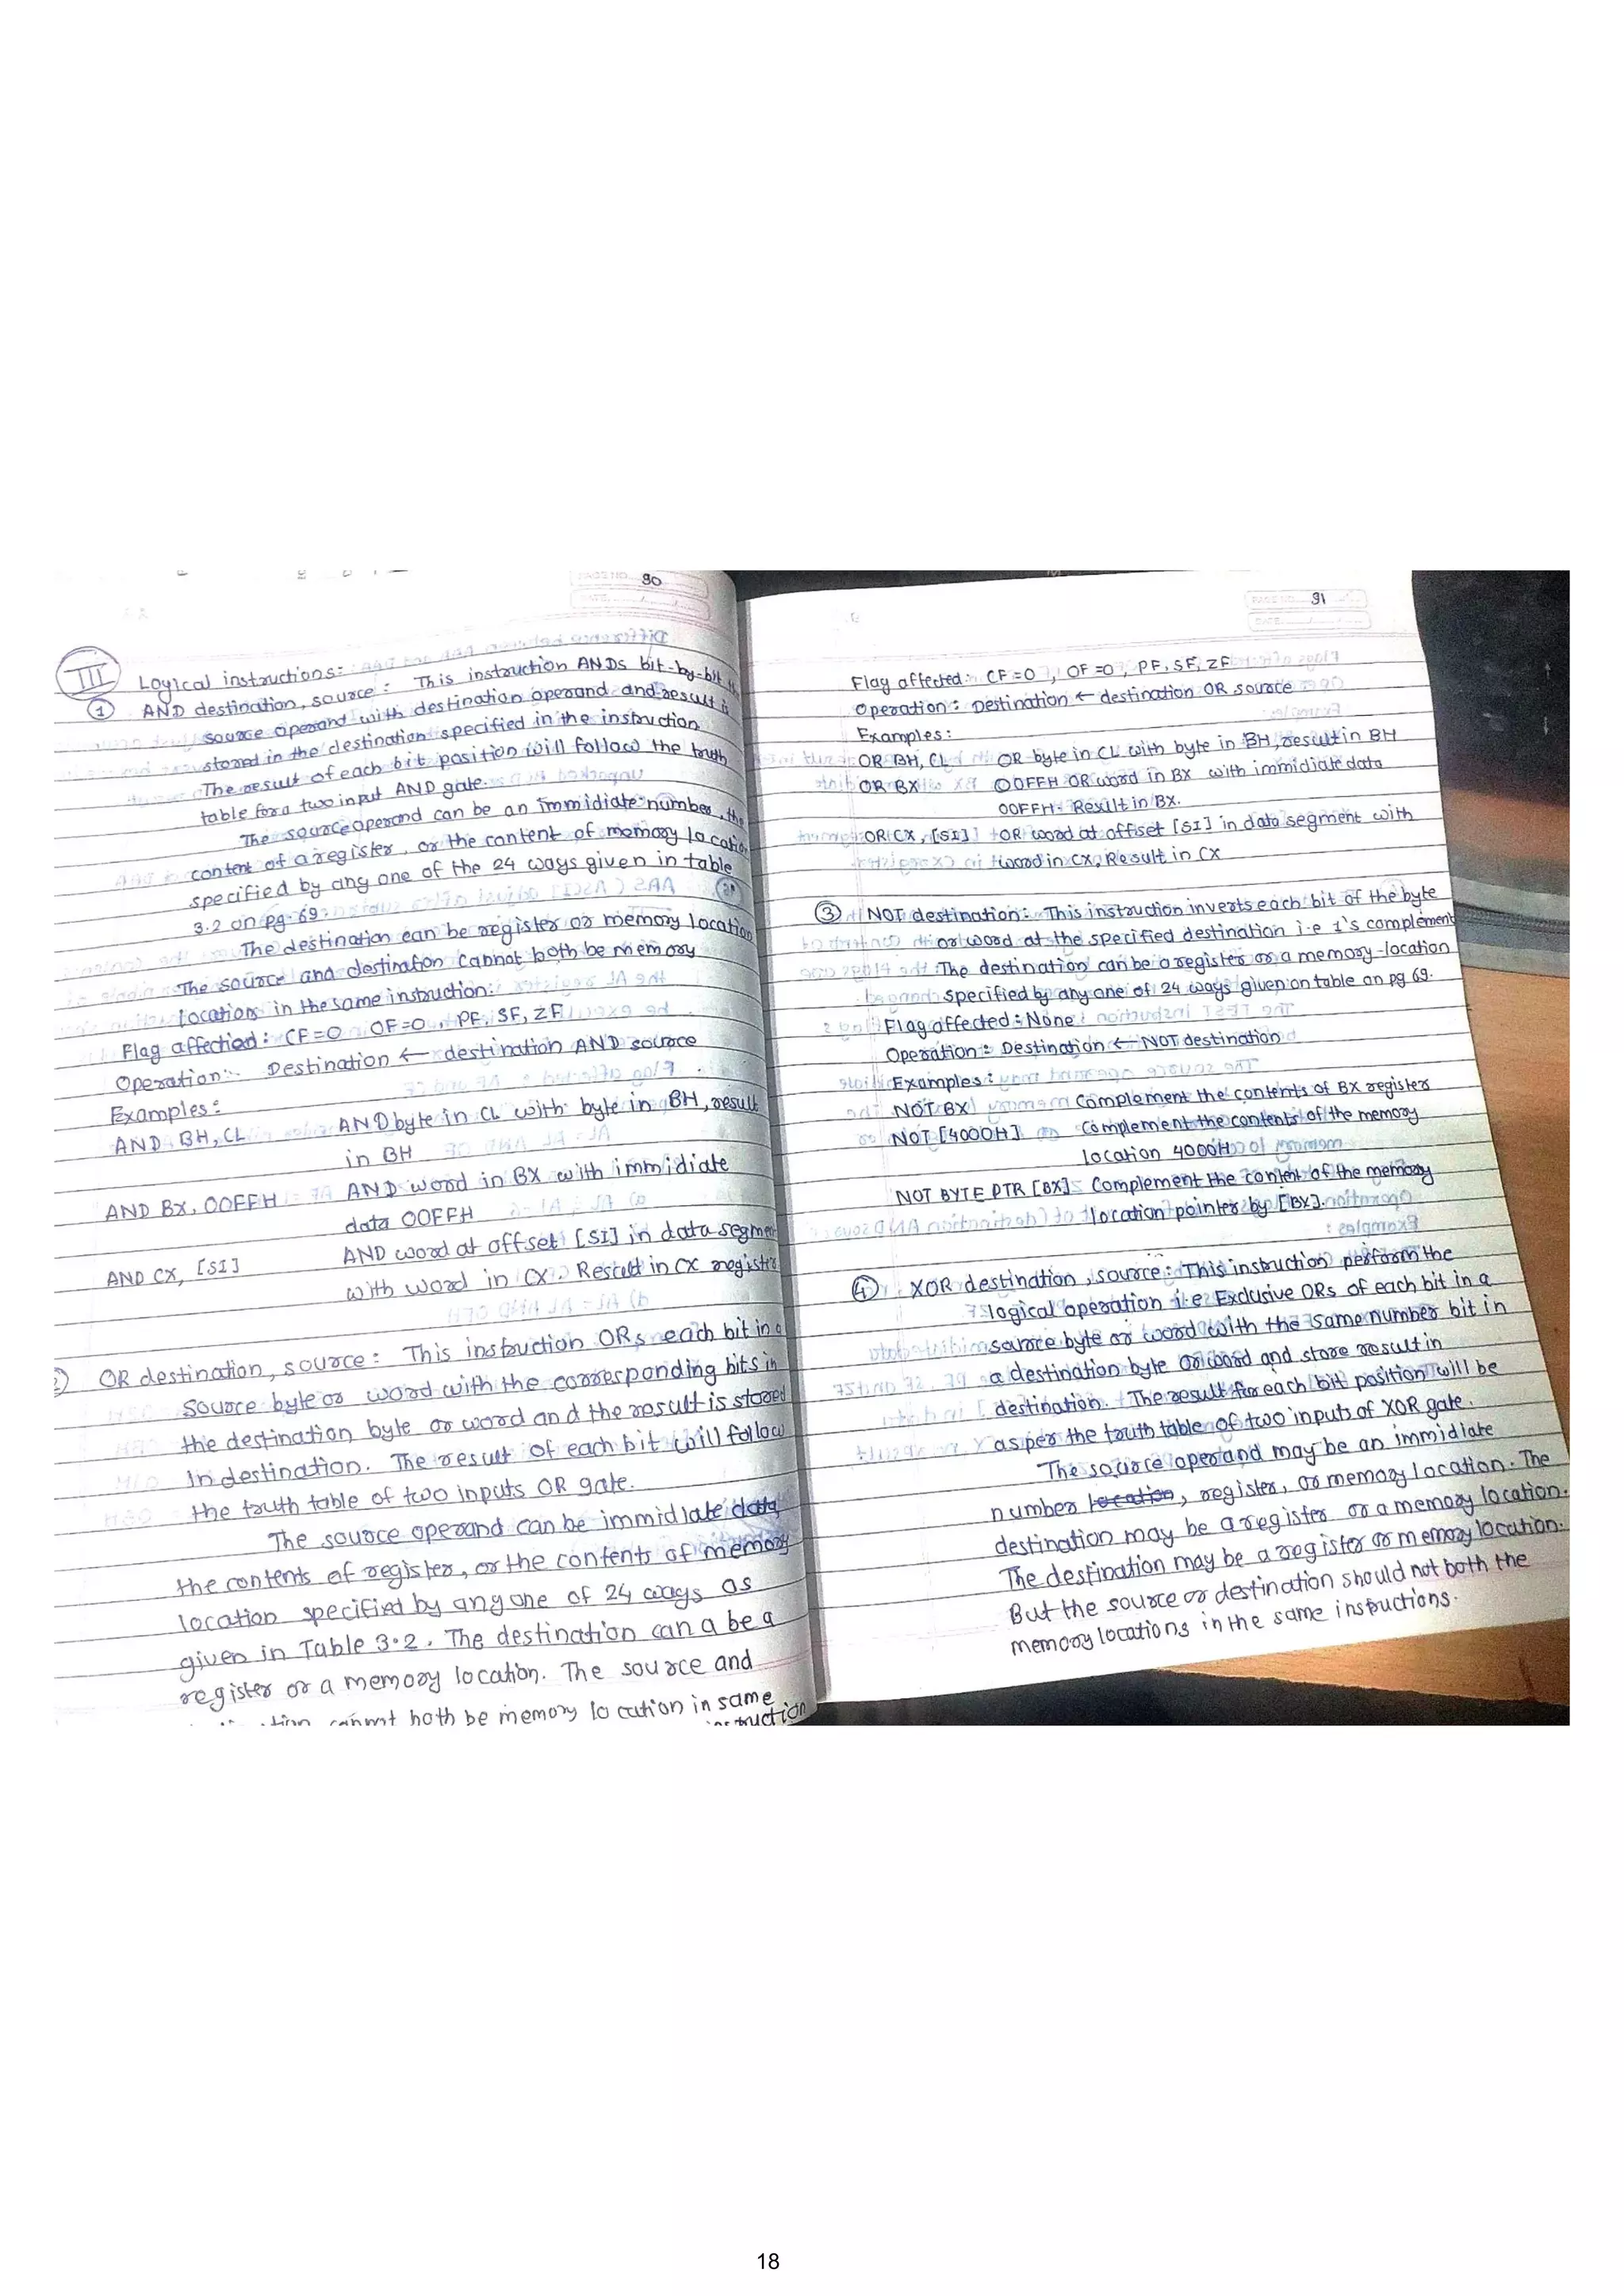 90
III Logical instructions:-
① AND destination, source : This instruction ANDs bit-by-bit the
source operand with destination operand and result is
stored in the destination specified in the instruction
The result of each bit position will follow the truth
table for a two input AND gate.
The source operand can be an immidiate number, the
content of a register, or the content of memory location
specified by any one of the 24 ways given in table
3.2 on pg. 69.
The destination can be register or memory location
The source and destination cannot both be memory
locations in the same instruction.
Flag affected: CF=0 OF=0, PF, SF, ZF
Operation:- Destination ← destination AND source
Examples:
AND BH, CL AND byte in CL with byte in BH, result
in BH
AND BX, 00FFH AND word in BX with immidiate
data 00FFH
AND CX, [SI] AND word at offset [SI] in data segment
with word in CX. Result in CX register
OR destination, source : This instruction ORs each bit in a
source byte or word with the corresponding bits in
the destination byte or word and the result is stored
in destination. The result of each bit will follow
the truth table of two inputs OR gate.
The source operand can be immidiate data,
the contents of register, or the contents of memory
location specified by any one of 24 ways as
given in Table 3.2. The destination can a be a
register or a memory location. The source and
cannot both be memory location in same
instruction
91
Flag affected: CF=0, OF=0, PF, SF, ZF
Operation: Destination ← destination OR source
Examples:
OR BH, CL OR byte in CL with byte in BH, result in BH
OR BX 00FFH OR word in BX with immidiate data
00FFH. Result in BX.
OR CX, [SI] OR word at offset [SI] in data segment with
word in CX, Result in CX
③ NOT destination: This instruction inverts each bit of the byte
or word at the specified destination i.e 1's complement
The destination can be a register or a memory-location
specified by any one of 24 ways given on table on pg 69.
Flag affected: None
Operation: Destination ← NOT destination
Examples:
NOT BX Complement the contents of BX register
NOT [4000H] Complement the contents of the memory
location 4000H
NOT BYTE PTR [BX] Complement the content of the memory
location pointer by [BX].
④ XOR destination, source: This instruction perform the
logical operation i.e Exclusive ORs of each bit in a
source byte or word with the same number bit in
a destination byte or word and store result in
destination. The result for each bit position will be
as per the truth table of two inputs of XOR gate.
The source operand may be an immidiate
number location, register, or memory location. The
destination may be a register or a memory location.
The destination may be a register or memory location.
But the source or destination should not both the
memory locations in the same instructions.
18